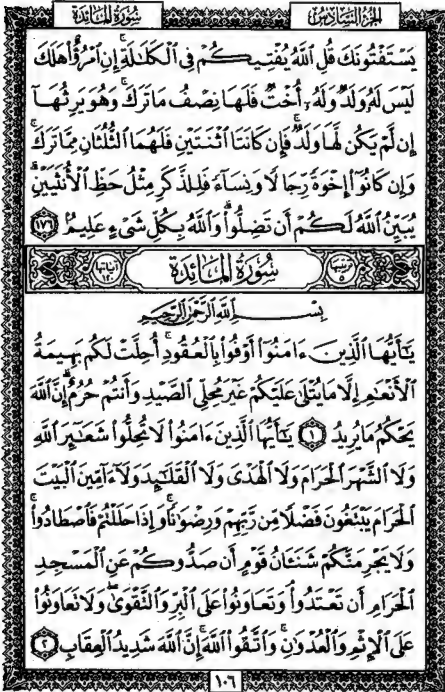 الجزء السادس
سورة المائدة
يَسْتَفْتُونَكَ قُلِ ٱللَّهُ يُفْتِيكُمْ فِى ٱلْكَلَٰلَةِ ۚ إِنِ ٱمْرُؤٌا۟ هَلَكَ
لَيْسَ لَهُۥ وَلَدٌ وَلَهُۥٓ أُخْتٌ فَلَهَا نِصْفُ مَا تَرَكَ ۚ وَهُوَ يَرِثُهَآ
إِن لَّمْ يَكُن لَّهَا وَلَدٌ ۚ فَإِن كَانَتَا ٱثْنَتَيْنِ فَلَهُمَا ٱلثُّلُثَانِ مِمَّا تَرَكَ ۚ
وَإِن كَانُوٓا۟ إِخْوَةً رِّجَالًا وَنِسَآءً فَلِلذَّكَرِ مِثْلُ حَظِّ ٱلْأُنثَيَيْنِ ۗ
يُبَيِّنُ ٱللَّهُ لَكُمْ أَن تَضِلُّوا۟ ۗ وَٱللَّهُ بِكُلِّ شَىْءٍ عَلِيمٌۢ ١٧٦
ترتيبها ٥
سورة المائدة
آياتها ١٢٠
بِسْمِ ٱللَّهِ ٱلرَّحْمَٰنِ ٱلرَّحِيمِ
يَٰٓأَيُّهَا ٱلَّذِينَ ءَامَنُوٓا۟ أَوْفُوا۟ بِٱلْعُقُودِ ۚ أُحِلَّتْ لَكُم بَهِيمَةُ
ٱلْأَنْعَٰمِ إِلَّا مَا يُتْلَىٰ عَلَيْكُمْ غَيْرَ مُحِلِّى ٱلصَّيْدِ وَأَنتُمْ حُرُمٌ ۗ إِنَّ ٱللَّهَ
يَحْكُمُ مَا يُرِيدُ ١ يَٰٓأَيُّهَا ٱلَّذِينَ ءَامَنُوا۟ لَا تُحِلُّوا۟ شَعَٰٓئِرَ ٱللَّهِ
وَلَا ٱلشَّهْرَ ٱلْحَرَامَ وَلَا ٱلْهَدْىَ وَلَا ٱلْقَلَٰٓئِدَ وَلَآ ءَآمِّينَ ٱلْبَيْتَ
ٱلْحَرَامَ يَبْتَغُونَ فَضْلًا مِّن رَّبِّهِمْ وَرِضْوَٰنًا ۚ وَإِذَا حَلَلْتُمْ فَٱصْطَادُوا۟ ۚ
وَلَا يَجْرِمَنَّكُمْ شَنَـَٔانُ قَوْمٍ أَن صَدُّوكُمْ عَنِ ٱلْمَسْجِدِ
ٱلْحَرَامِ أَن تَعْتَدُوا۟ ۘ وَتَعَاوَنُوا۟ عَلَى ٱلْبِرِّ وَٱلتَّقْوَىٰ ۖ وَلَا تَعَاوَنُوا۟
عَلَى ٱلْإِثْمِ وَٱلْعُدْوَٰنِ ۚ وَٱتَّقُوا۟ ٱللَّهَ ۖ إِنَّ ٱللَّهَ شَدِيدُ ٱلْعِقَابِ ٢
١٠٦